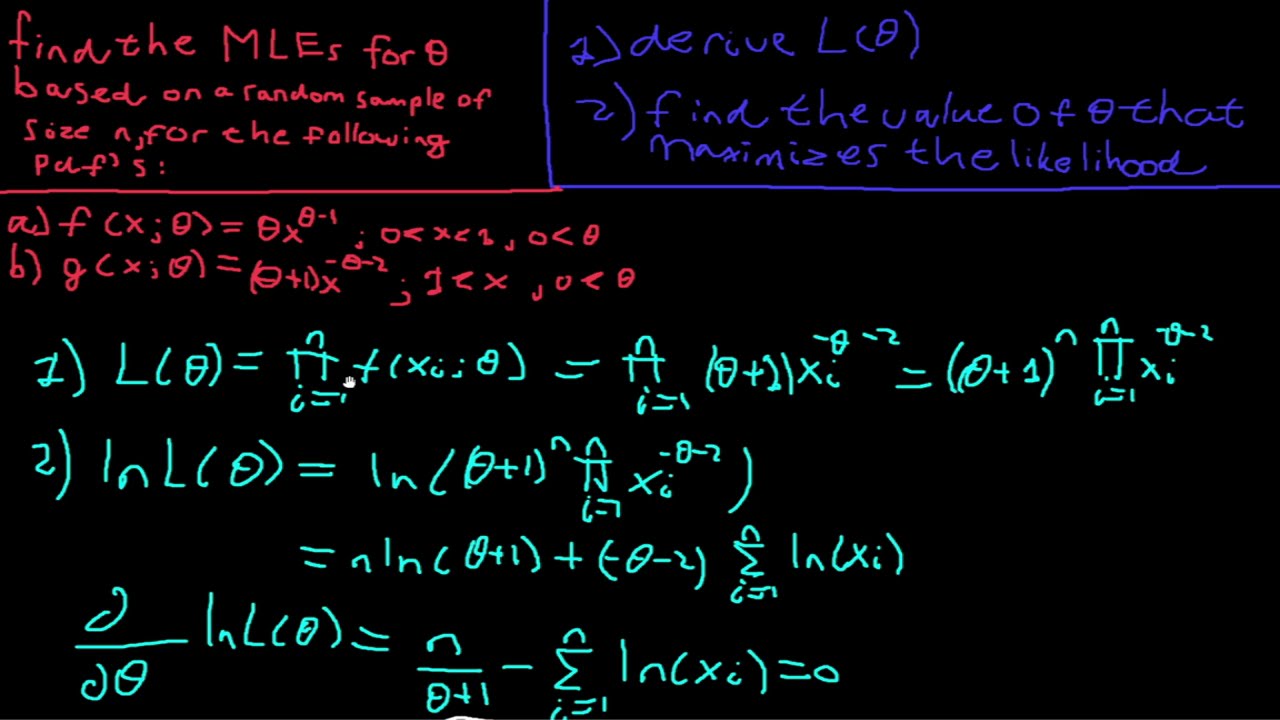 find the MLEs for θ
based on a random sample of
size n, for the following
pdf's:
1) derive L(θ)
2) find the value of θ that
maximizes the likelihood
a) f(x;θ) = θx^{θ-1} ; 0<x<1, 0<θ
b) g(x;θ) = (θ+1)x^{-θ-2} ; 1<x, 0<θ
1) L(θ) = ∏_{i=1}^{n} f(x_i;θ) = ∏_{i=1}^{n} (θ+1)x_i^{-θ-2} = (θ+1)^n ∏_{i=1}^{n} x_i^{-θ-2}
2) ln L(θ) = ln((θ+1)^n ∏_{i=1}^{n} x_i^{-θ-2})
= n ln(θ+1) + (-θ-2) ∑_{i=1}^{n} ln(x_i)
∂/∂θ ln L(θ) = n/(θ+1) - ∑_{i=1}^{n} ln(x_i) = 0